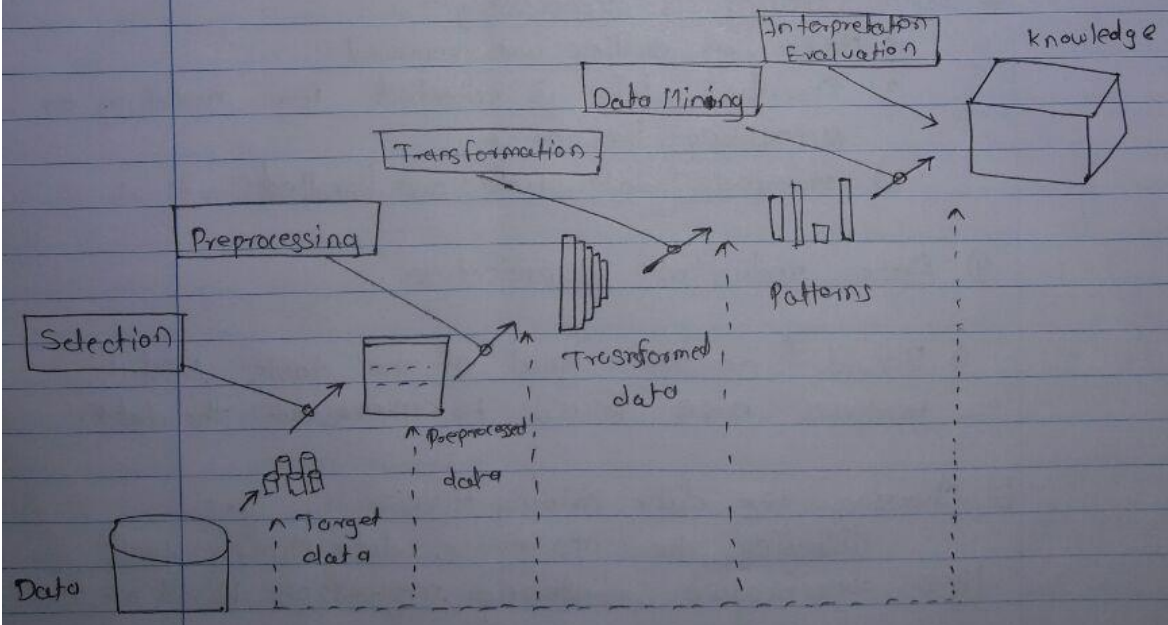 Interpretation
Evaluation
Knowledge
Data Mining
Transformation
Preprocessing
Patterns
Selection
Tresnformed
data
Preprocessed
data
Target
data
Data